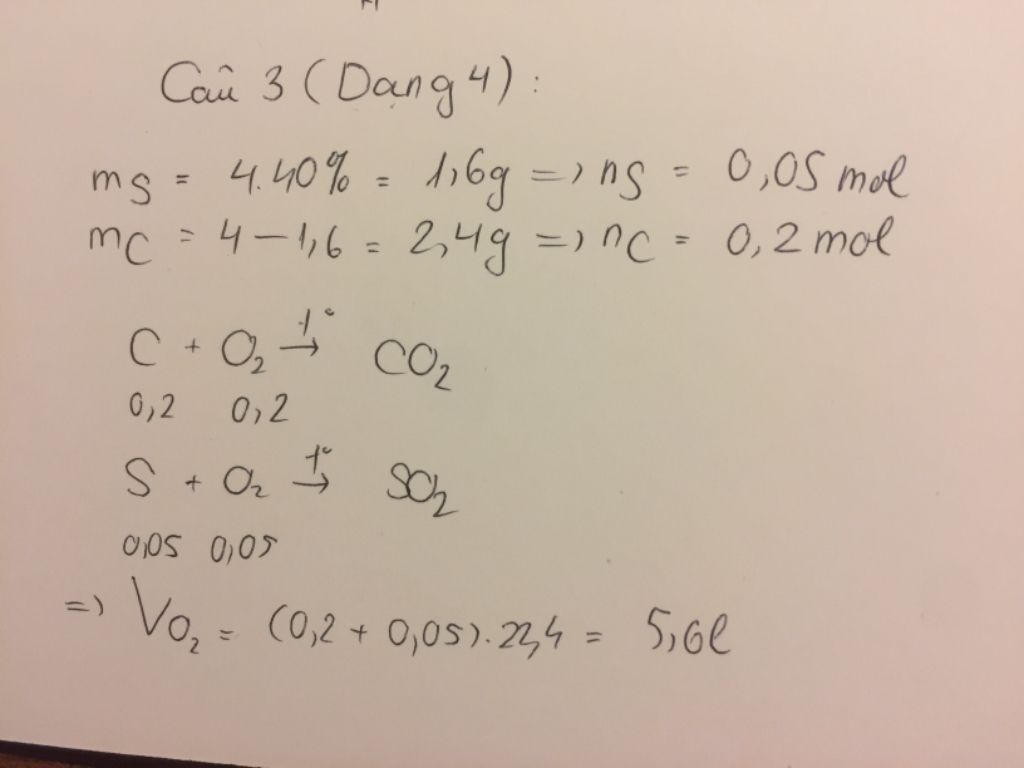 Câu 3 (Dạng 4) :
mS = 4.40% = 1,6g => nS = 0,05 mol
mC = 4 – 1,6 = 2,4g => nC = 0,2 mol
C + O₂ →t° CO₂
0,2 0,2
S + O₂ →t° SO₂
0,05 0,05
=> VO₂ = (0,2 + 0,05).22,4 = 5,6l